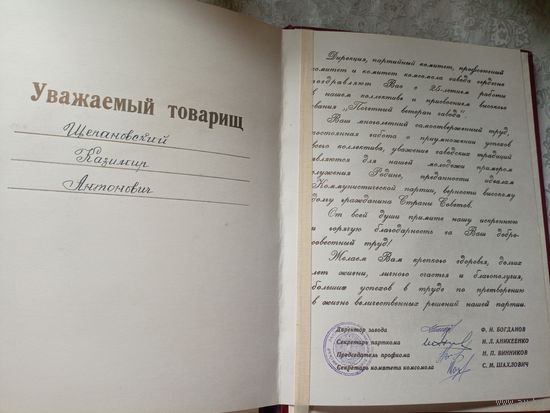 Уважаемый товарищ
Щепановский
Казимир
Антонович
Дирекция, партийный комитет, профсоюзный
комитет и комитет комсомола завода сердечно
поздравляют Вас с 25-летием работы
в нашем коллективе и присвоением высокого
звания „Почетный ветеран завода".
Ваш многолетний самоотверженный труд,
постоянная забота о приумножении успехов
всего коллектива, уважение заводских традиций
являются для нашей молодежи примером
служения Родине, преданности идеалам
Коммунистической партии, верности высокому
долгу гражданина Страны Советов.
От всей души примите нашу искреннюю
и горячую благодарность за Ваш добро-
совестный труд!
Желаем Вам крепкого здоровья, долгих
лет жизни, личного счастья и благополучия,
больших успехов в труде по претворению
в жизнь величественных решений нашей партии.
Директор завода Ф. Н. БОГДАНОВ
Секретарь парткома Н. Л. АНИКЕЕНКО
Председатель профкома Н. П. ВИННИКОВ
Секретарь комитета комсомола С. М. ШАХЛОВИЧ